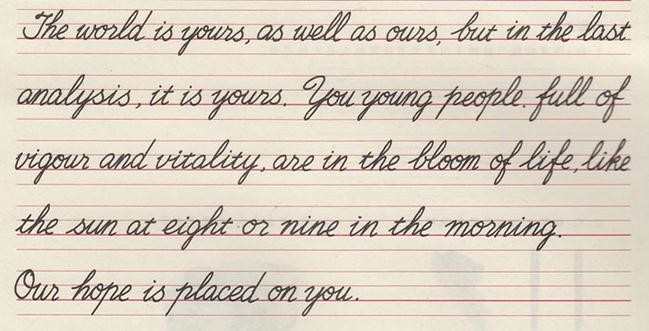 The world is yours, as well as ours, but in the last
analysis, it is yours. You young people. full of
vigour and vitality, are in the bloom of life, like
the sun at eight or nine in the morning.
Our hope is placed on you.